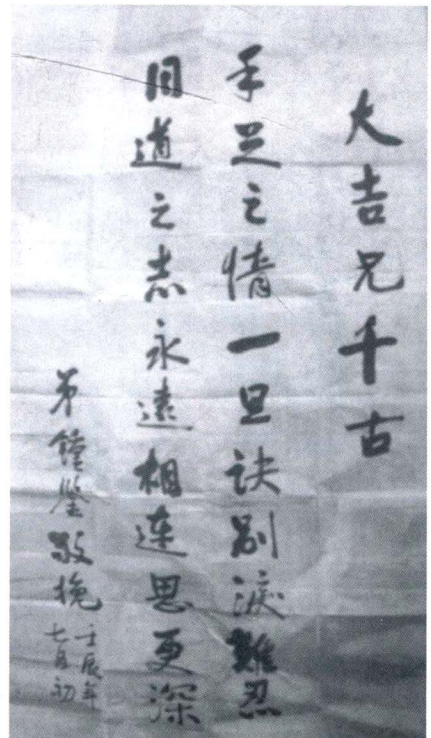 大吉兄千古
手足之情一旦诀别淚難忍
同道之志永遠相连思更深
弟鐘鉴敬挽
壬辰年
七月初